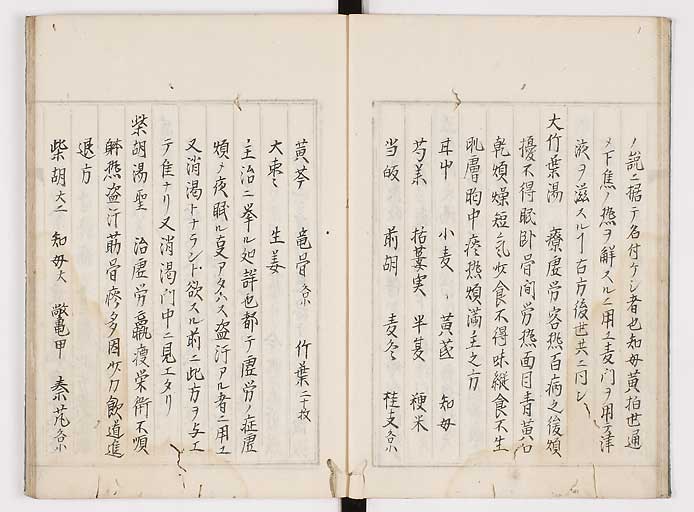 ノ説ニ据テ名付ケシ者也知母黄柏世通
メ下焦ノ熱ヲ解スルニ用ユ麦门ヲ用テ津
液ヲ滋スルー古方後世共ニ同シ
大竹葉湯 療虚労客熱百病之後煩
擾不得眠卧骨間労熱面目青黄口
乾煩燥短氣少食不得味縦食不生
肌膚胸中痰熱煩満主之方
甘中 小麦 黄芪 知母
芍薬 栝蔞実 半夏 粳米
当皈 前胡 麦冬 桂支各小
黄芩 竜骨各小 竹葉二十枚
大枣 生姜
主治ニ挙ル如 詳也都テ虚労ノ症虚
煩メ夜眠ル アタハス盗汗アル者ニ用ユ
又消渇トナラント欲スル前ニ此方ヲ与エ
テ佳ナリ又消渇门中ニ見エタリ
柴胡湯聖 治虚労羸痩栄衛不順
躰热盗汗筋骨 多困少力飲 進
退方
柴胡大二 知母大 鱉亀甲 秦艽各小